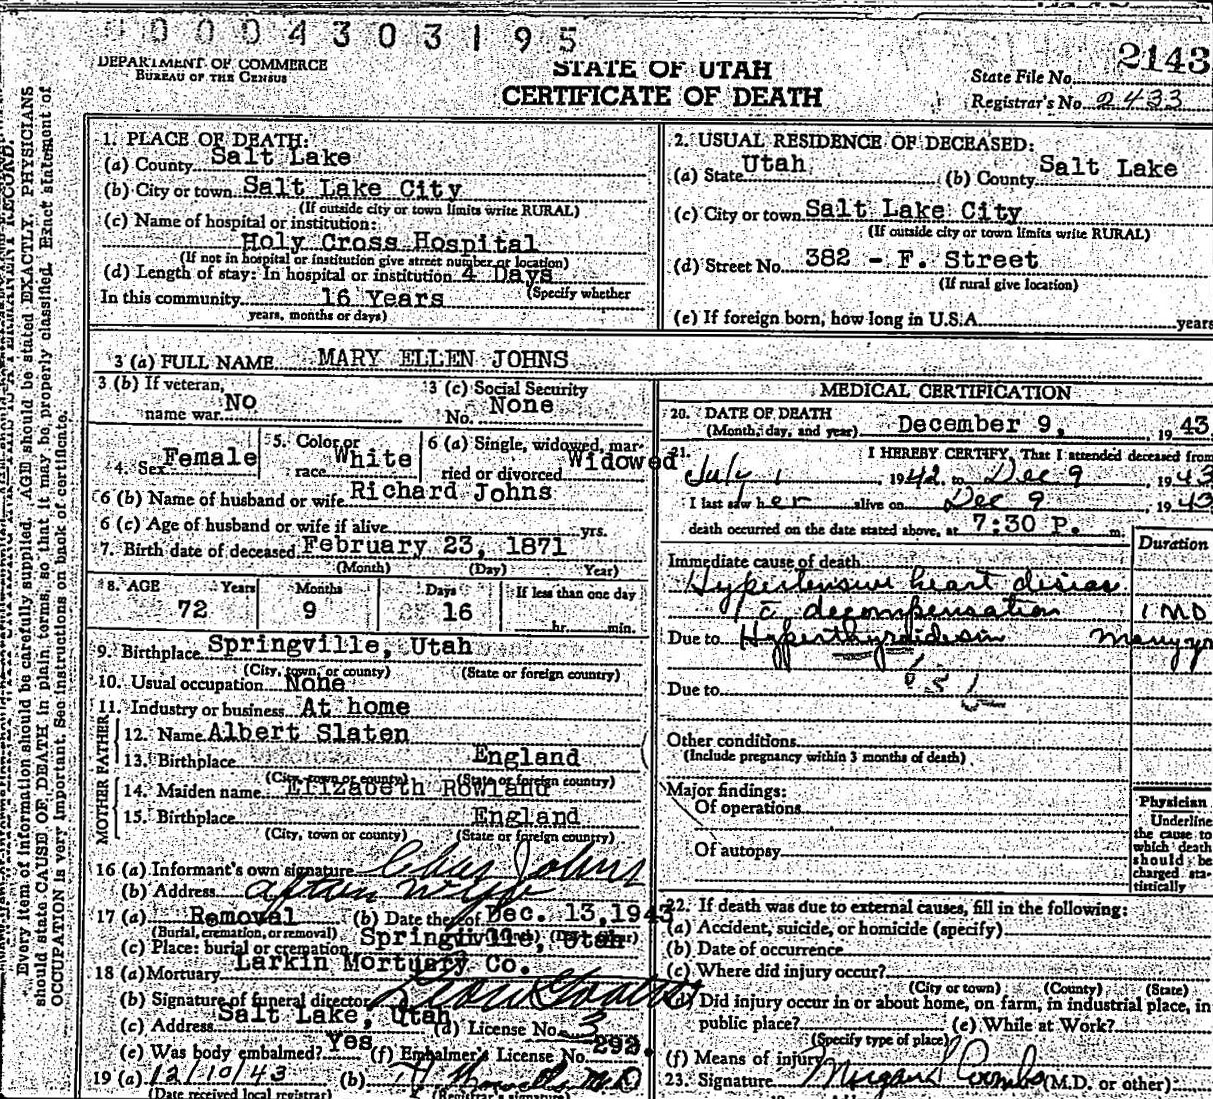 0004303195
DEPARTMENT OF COMMERCE
BUREAU OF THE CENSUS
STATE OF UTAH
CERTIFICATE OF DEATH
2143
State File No.
Registrar's No. 2433
Every item of information should be carefully supplied. AGE should be stated EXACTLY. PHYSICIANS
should state CAUSE OF DEATH in plain terms, so that it may be properly classified. Exact statement of
OCCUPATION is very important. See instructions on back of certificate.
1. PLACE OF DEATH:
(a) County Salt Lake
(b) City or town Salt Lake City
(If outside city or town limits write RURAL)
(c) Name of hospital or institution:
Holy Cross Hospital
(If not in hospital or institution give street number or location)
(d) Length of stay: In hospital or institution 4 Days
(Specify whether
In this community 16 Years
years, months or days)
2. USUAL RESIDENCE OF DECEASED:
(a) State Utah (b) County Salt Lake
(c) City or town Salt Lake City
(If outside city or town limits write RURAL)
(d) Street No. 382 - F. Street
(If rural give location)
(e) If foreign born, how long in U.S.A. years
3 (a) FULL NAME MARY ELLEN JOHNS
3 (b) If veteran, name war No
3 (c) Social Security No. None
4. Sex Female
5. Color or race White
6 (a) Single, widowed, married or divorced Widowed
6 (b) Name of husband or wife Richard Johns
6 (c) Age of husband or wife if alive yrs.
7. Birth date of deceased February 23, 1871
(Month) (Day) Year)
8. AGE Years Months Days If less than one day
72 9 16 hr. min.
9. Birthplace Springville, Utah
(City, town, or county) (State or foreign country)
10. Usual occupation None
11. Industry or business At home
FATHER
12. Name Albert Slaten
13. Birthplace England
(City, town or county) (State or foreign country)
MOTHER
14. Maiden name Elizabeth Rowland
15. Birthplace England
(City, town or county) (State or foreign country)
16 (a) Informant's own signature Johns
(b) Address Afton Wyo
17 (a) Removal (b) Date thereof Dec. 13, 1943
(Burial, cremation, or removal)
(c) Place: burial or cremation Springville, Utah
18 (a) Mortuary Larkin Mortuary Co.
(b) Signature of funeral director
(c) Address Salt Lake, Utah (d) License No. 3
(e) Was body embalmed? Yes (f) Embalmer's License No. 292.
19 (a) 12/10/43 (b) M.D
(Date received local registrar) (Registrar's signature)
MEDICAL CERTIFICATION
20. DATE OF DEATH
(Month, day, and year) December 9, 1943
21. I HEREBY CERTIFY, That I attended deceased from
July 1 1942, to Dec 9, 1943
I last saw her alive on Dec 9, 1943
death occurred on the date stated above, at 7:30 P. m.
Duration
Immediate cause of death
Hypertensive heart diseas
c̄ decompensation 1 MO
Due to Hyperthyroidism Many yr
Due to
Other conditions
(Include pregnancy within 3 months of death)
Major findings:
Of operations
Of autopsy
Physician
Underline
the cause to
which death
should be
charged sta-
tistically
22. If death was due to external causes, fill in the following:
(a) Accident, suicide, or homicide (specify)
(b) Date of occurrence
(c) Where did injury occur?
(City or town) (County) (State)
(d) Did injury occur in or about home, on farm, in industrial place, in
public place? (e) While at Work?
(Specify type of place)
(f) Means of injury
23. Signature Morgan Coombs (M.D. or other)